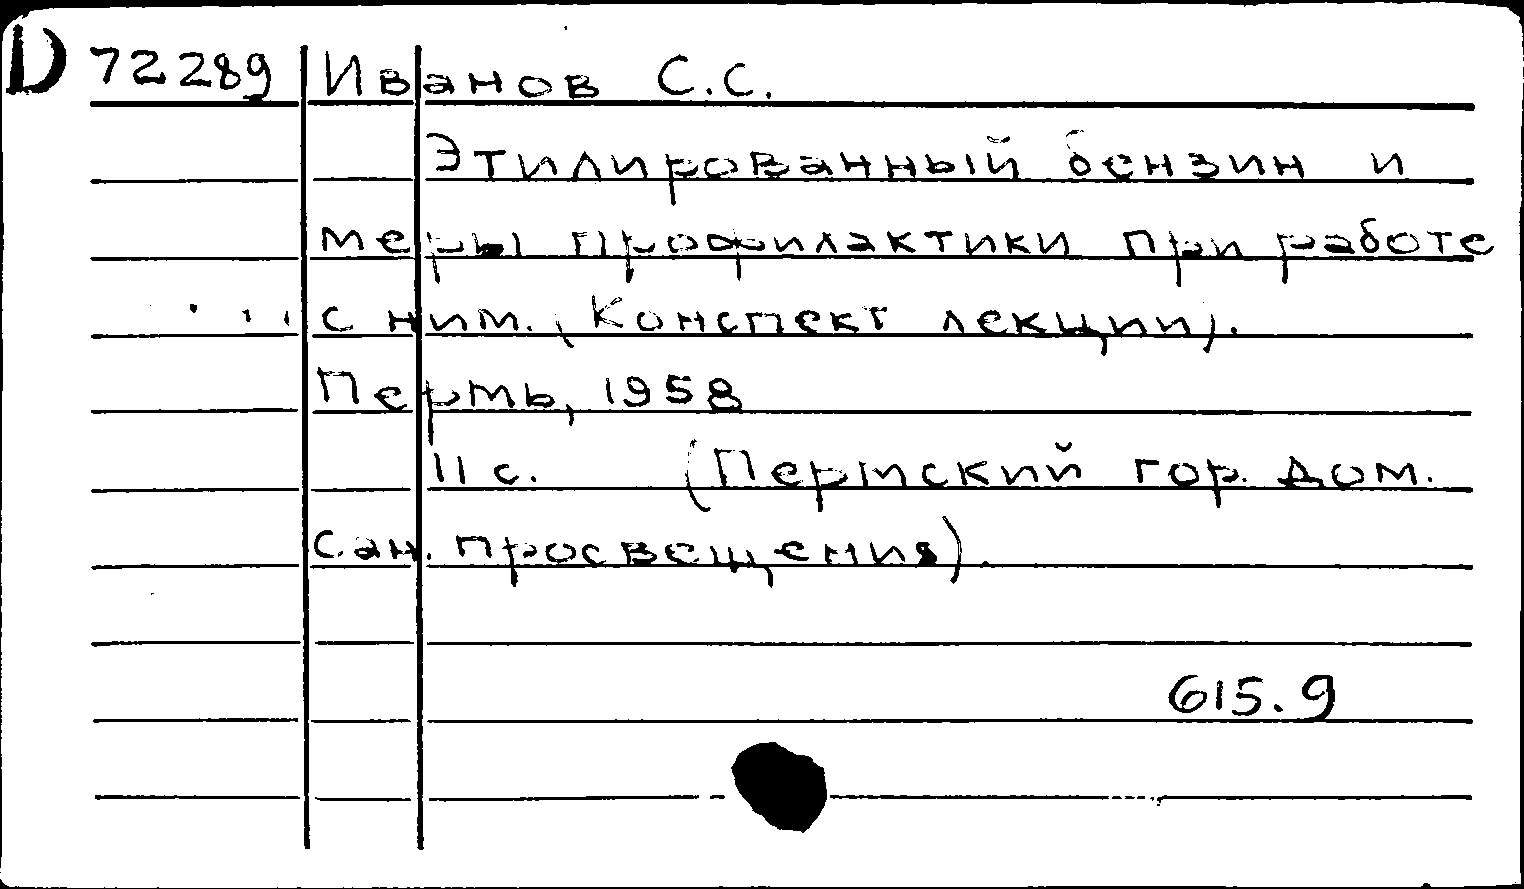 D 72289 Иванов С.С.
Этилированный бензин и
меры профилактики при работе
с ним. (Конспект лекции).
Пермь, 1958
11 с. (Пермский гор. дом.
сан. просвещения).
615.9